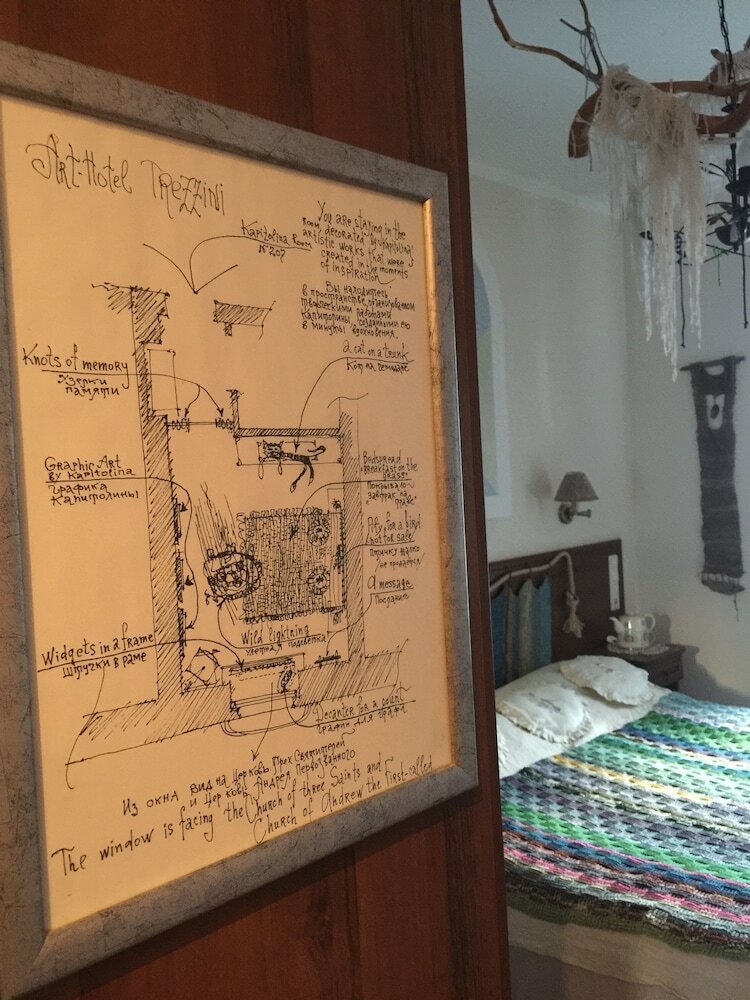 Art-Hotel TREZZINI
Kapitolina Room
N°207
You are staying in the
room decorated by "Kapitolina"
artistic works that were
created in the moments
of inspiration
Вы находитесь
в пространстве, организованном
творческими работами
Капитолины, созданными ею
в минуты вдохновения.
a cat on a trunk
Кот на чемодане
Knots of memory
Узелки
памяти
Graphic Art
by Kapitolina
графика
Капитолины
Bedspread
"Breakfast on the
grass"
Покрывало-
"завтрак на
траве"
Pity for a bird
/not for sale/
Птичку жалко
/не продаётся/
a message
Послание
Wild lightning
улётная подсветка
Widgets in a frame
Штучки в раме
Decanter for a count
графин для графа
Из окна вид на Церковь Трех Святителей
и Церковь Андрея Первозванного
The window is facing the Church of three Saints and
Church of Andrew the First-called